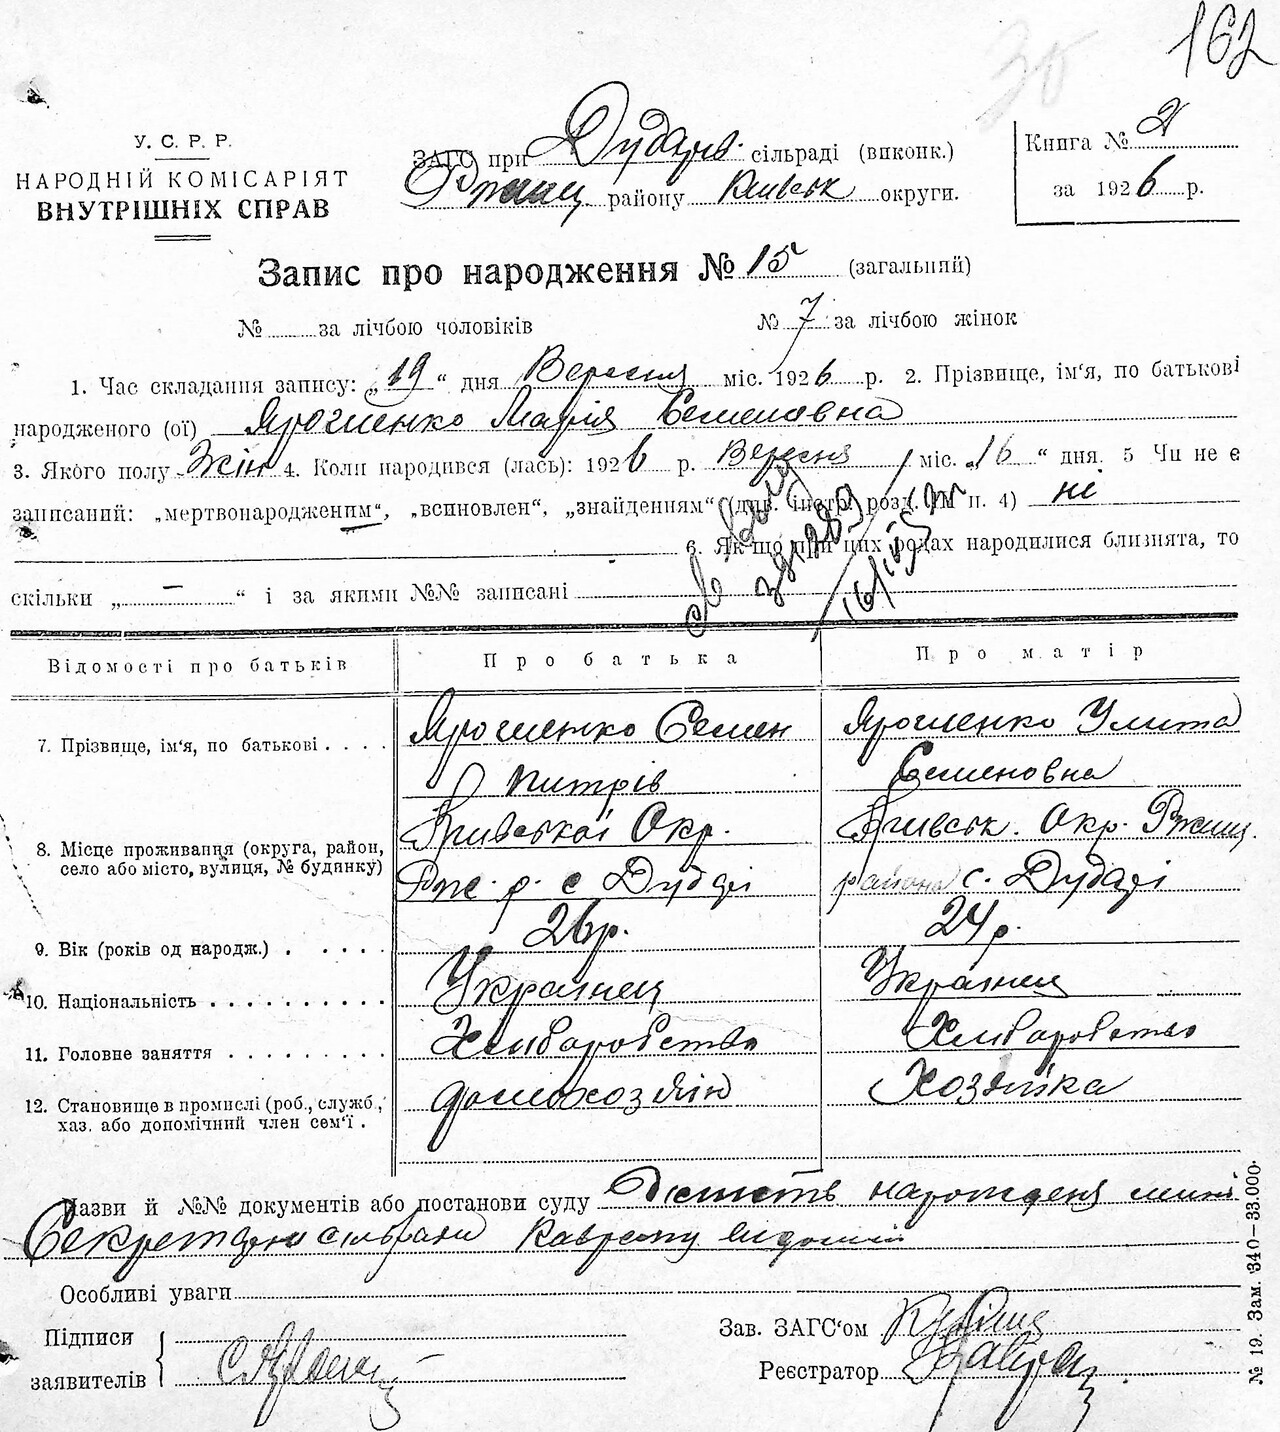 162
30
У. С. Р. Р.
НАРОДНІЙ КОМІСАРІЯТ
ВНУТРІШНІХ СПРАВ
ЗАГС при Дударів. сільраді (виконк.)
Ржищ. району Київськ округи.
Книга № 2
за 1926 р.
Запис про народження № 15 (загальний)
№ за лічбою чоловіків № 7 за лічбою жінок
1. Час складання запису: „19“ дня Вересня міс. 1926 р. 2. Прізвище, ім'я, по батькові
народженого (ої) Ярошенко Марія Семеновна
3. Якого полу Жін 4. Коли народився (лась): 1926 р. Вересня міс. „16“ дня. 5 Чи не є
записаний: „мертвонародженим“, „всиновлен“, „знайденням“ (див. інстр. розд. п. 4) ні
6. Якщо при цих родах народилися близнята, то
скільки „ — “ і за якими №№ записані
Відомості про батьків Про батька Про матір
7. Прізвище, ім'я, по батькові . . . . Ярошенко Семен Ярошенко Улита
Питрів Семеновна
8. Місце проживання (округа, район, село або місто, вулиця, № будинку) Київської Окр. Київськ. Окр. Ржищ.
Рж. р. с Дударі района с. Дударі
9. Вік (років од народж.) . . . . . 26 р. 24 р.
10. Національність . . . . . . . . . . Українец Українец
11. Головне заняття . . . . . . . . . Хлиборобство Хлиборобство
12. Становище в промислі (роб., служб., хаз. або допомічний член сем'ї . домохозяїн Хозяйка
Назви й №№ документів або постанови суду нарождения
Секретарю сільради
Особливі уваги
Підписи
заявителів
Зав. ЗАГС'ом
Реєстратор
№ 19. Зам. 340—33.000.